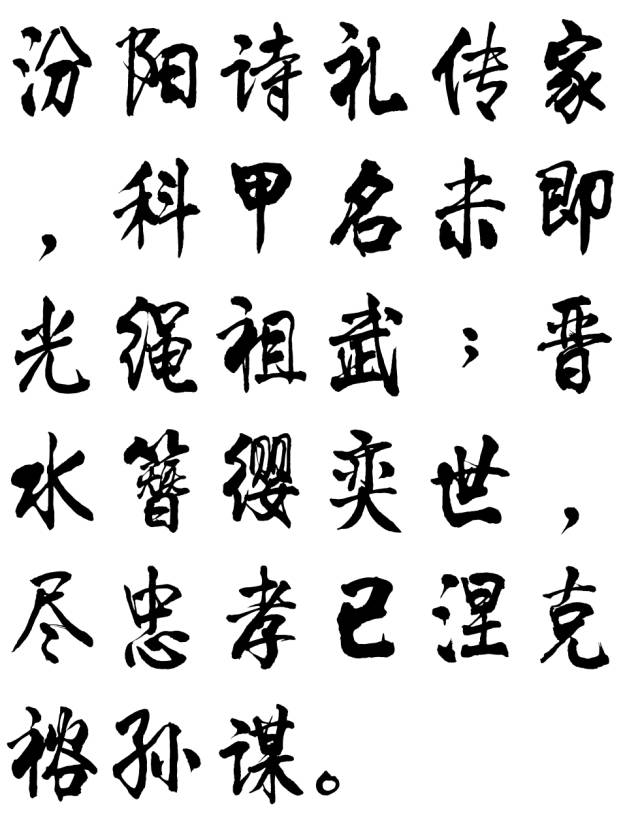 汾阳诗礼传家
，科甲名未即
光绳祖武；晋
水簪缨奕世，
尽忠孝已涅克
裕孙谋。